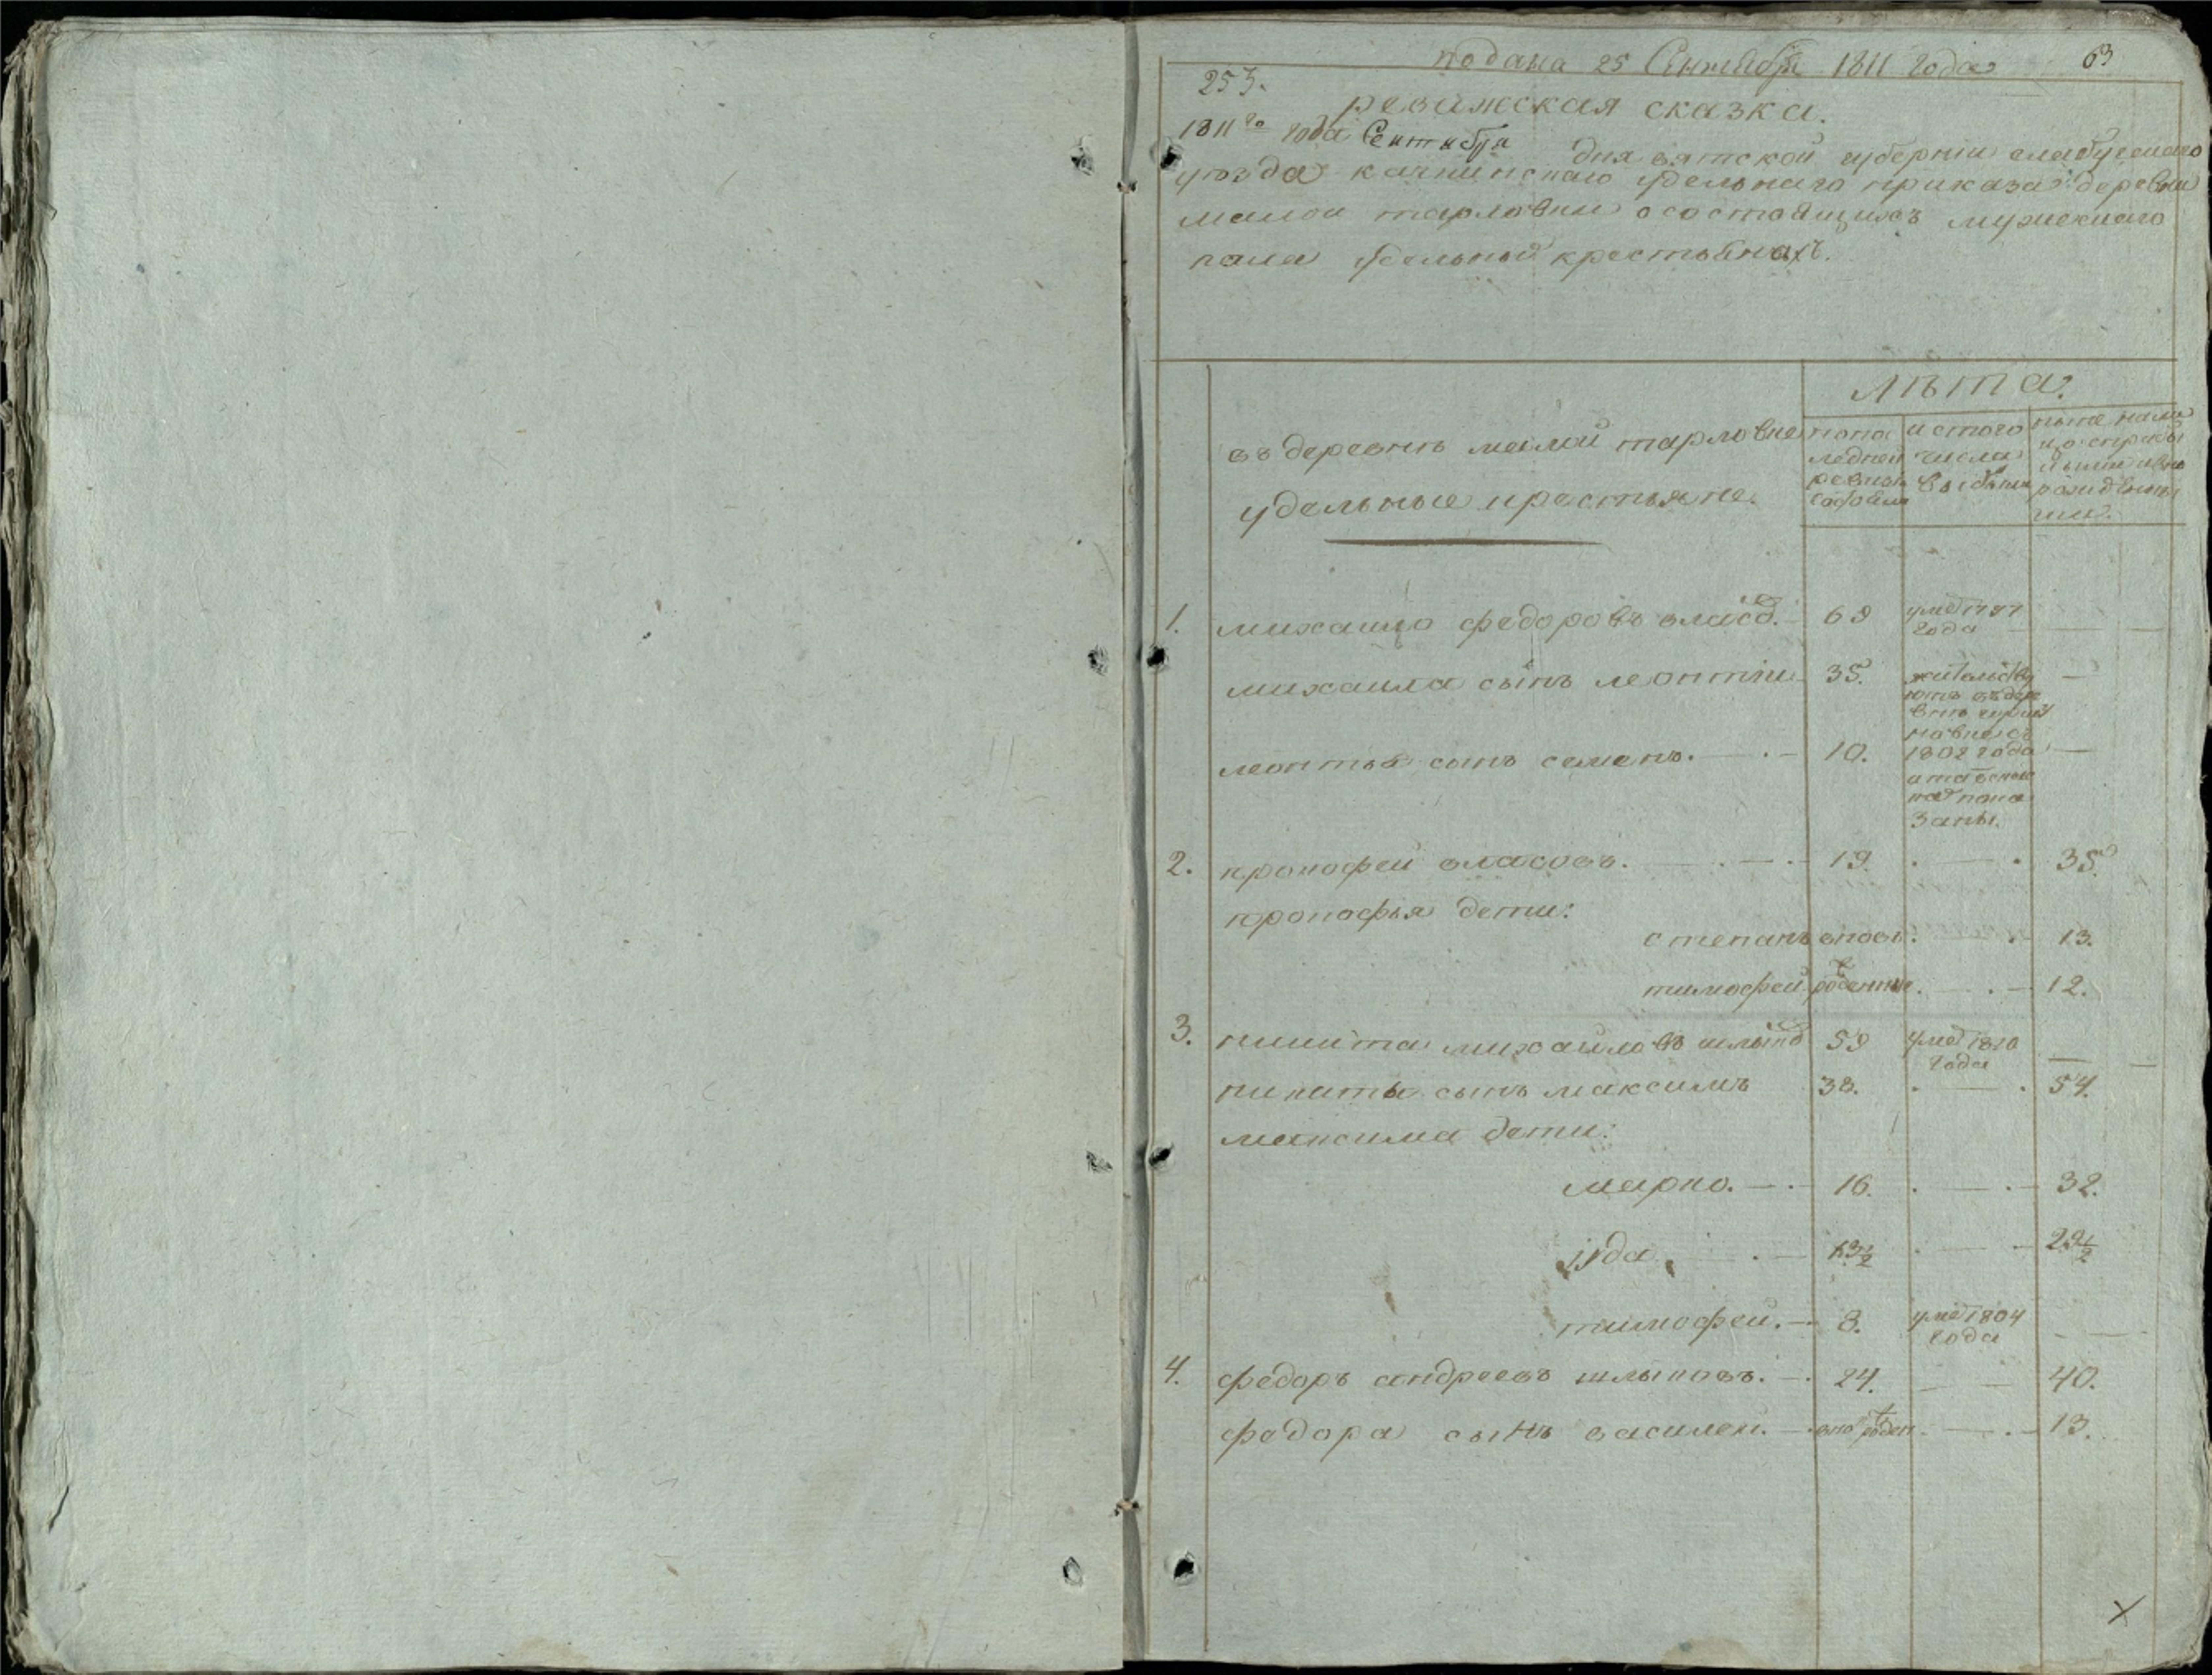 подана 25 Сентября 1811 года 63
253.
ревижская сказка.
1811го года Сентября дня вятской губернии елабугскаго
уезда качкинскаго удельнаго приказа деревни
малои тарловки о состоящихъ мужескаго
пола удельныхъ крестьянахъ.
лѣта.
въ деревнѣ малой тарловке
удельные крестьяне.
по по
ледней
ревизіи
состояли
и стого
числа
выбыли
ныне на ли
цо
1. михаило федоровъ власо. 69 уме 1797
года
михаила сынъ леонтіи 35. жительству
ютъ въ дере
внѣ
1802 года
и тамъ
пока
заны.
леонтья сынъ семенъ. 10.
2. прокофеи власовъ. 19. 35.
прокофья дети:
степанъ вновь. 13.
тимофеи рожденные. 12.
3. никита михаиловъ шлыко 59 уме 1810
года
никиты сынъ максимъ 38. 54.
максима дети:
марко. 16. 32.
іуда. 13½ 29½
тимофеи. 8. уме 1804
года
4. федоръ андреевъ шлыковъ. 24. 40.
федора сынъ василеи. вно рожден. 13.